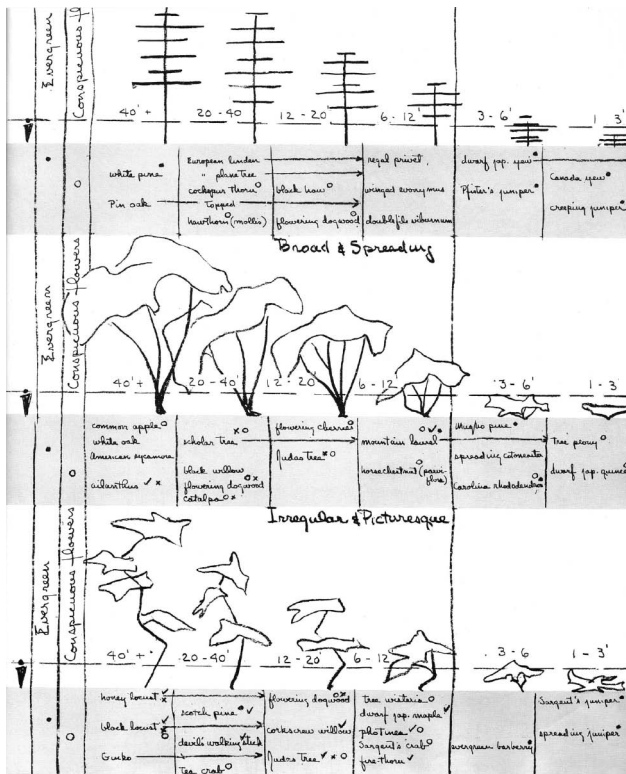 Evergreen
Conspicuous flowers
40' + 20-40' 12-20' 6-12' 3-6' 1-3'
white pine
Pin oak
European linden
" plane tree
cockspur thorn
Topped
hawthorn (mollis)
black haw
flowering dogwood
regal privet
winged euonymus
doublefile viburnum
dwarf jap. yew
Pfitzer's juniper
Canada yew
creeping juniper
Broad & Spreading
Evergreen
Conspicuous flowers
40' + 20-40' 12-20' 6-12' 3-6' 1-3'
common apple
white oak
american sycamore
ailanthus
scholar tree
black willow
flowering dogwood
catalpa
flowering cherries
Judas Tree
mountain laurel
horsechestnut (parviflora)
Mugho pine
spreading cotoneaster
Carolina rhododendron
Tree peony
dwarf jap. quince
Irregular & Picturesque
Evergreen
Conspicuous flowers
40' + 20-40' 12-20' 6-12' 3-6' 1-3'
honey locust
black locust
Ginko
scotch pine
devil's walking stick
Tea crab
flowering dogwood
corkscrew willow
Judas Tree
tree wistaria
dwarf jap. maple
photinea
Sargent's crab
fire thorn
evergreen barberry
Sargent's juniper
spreading juniper